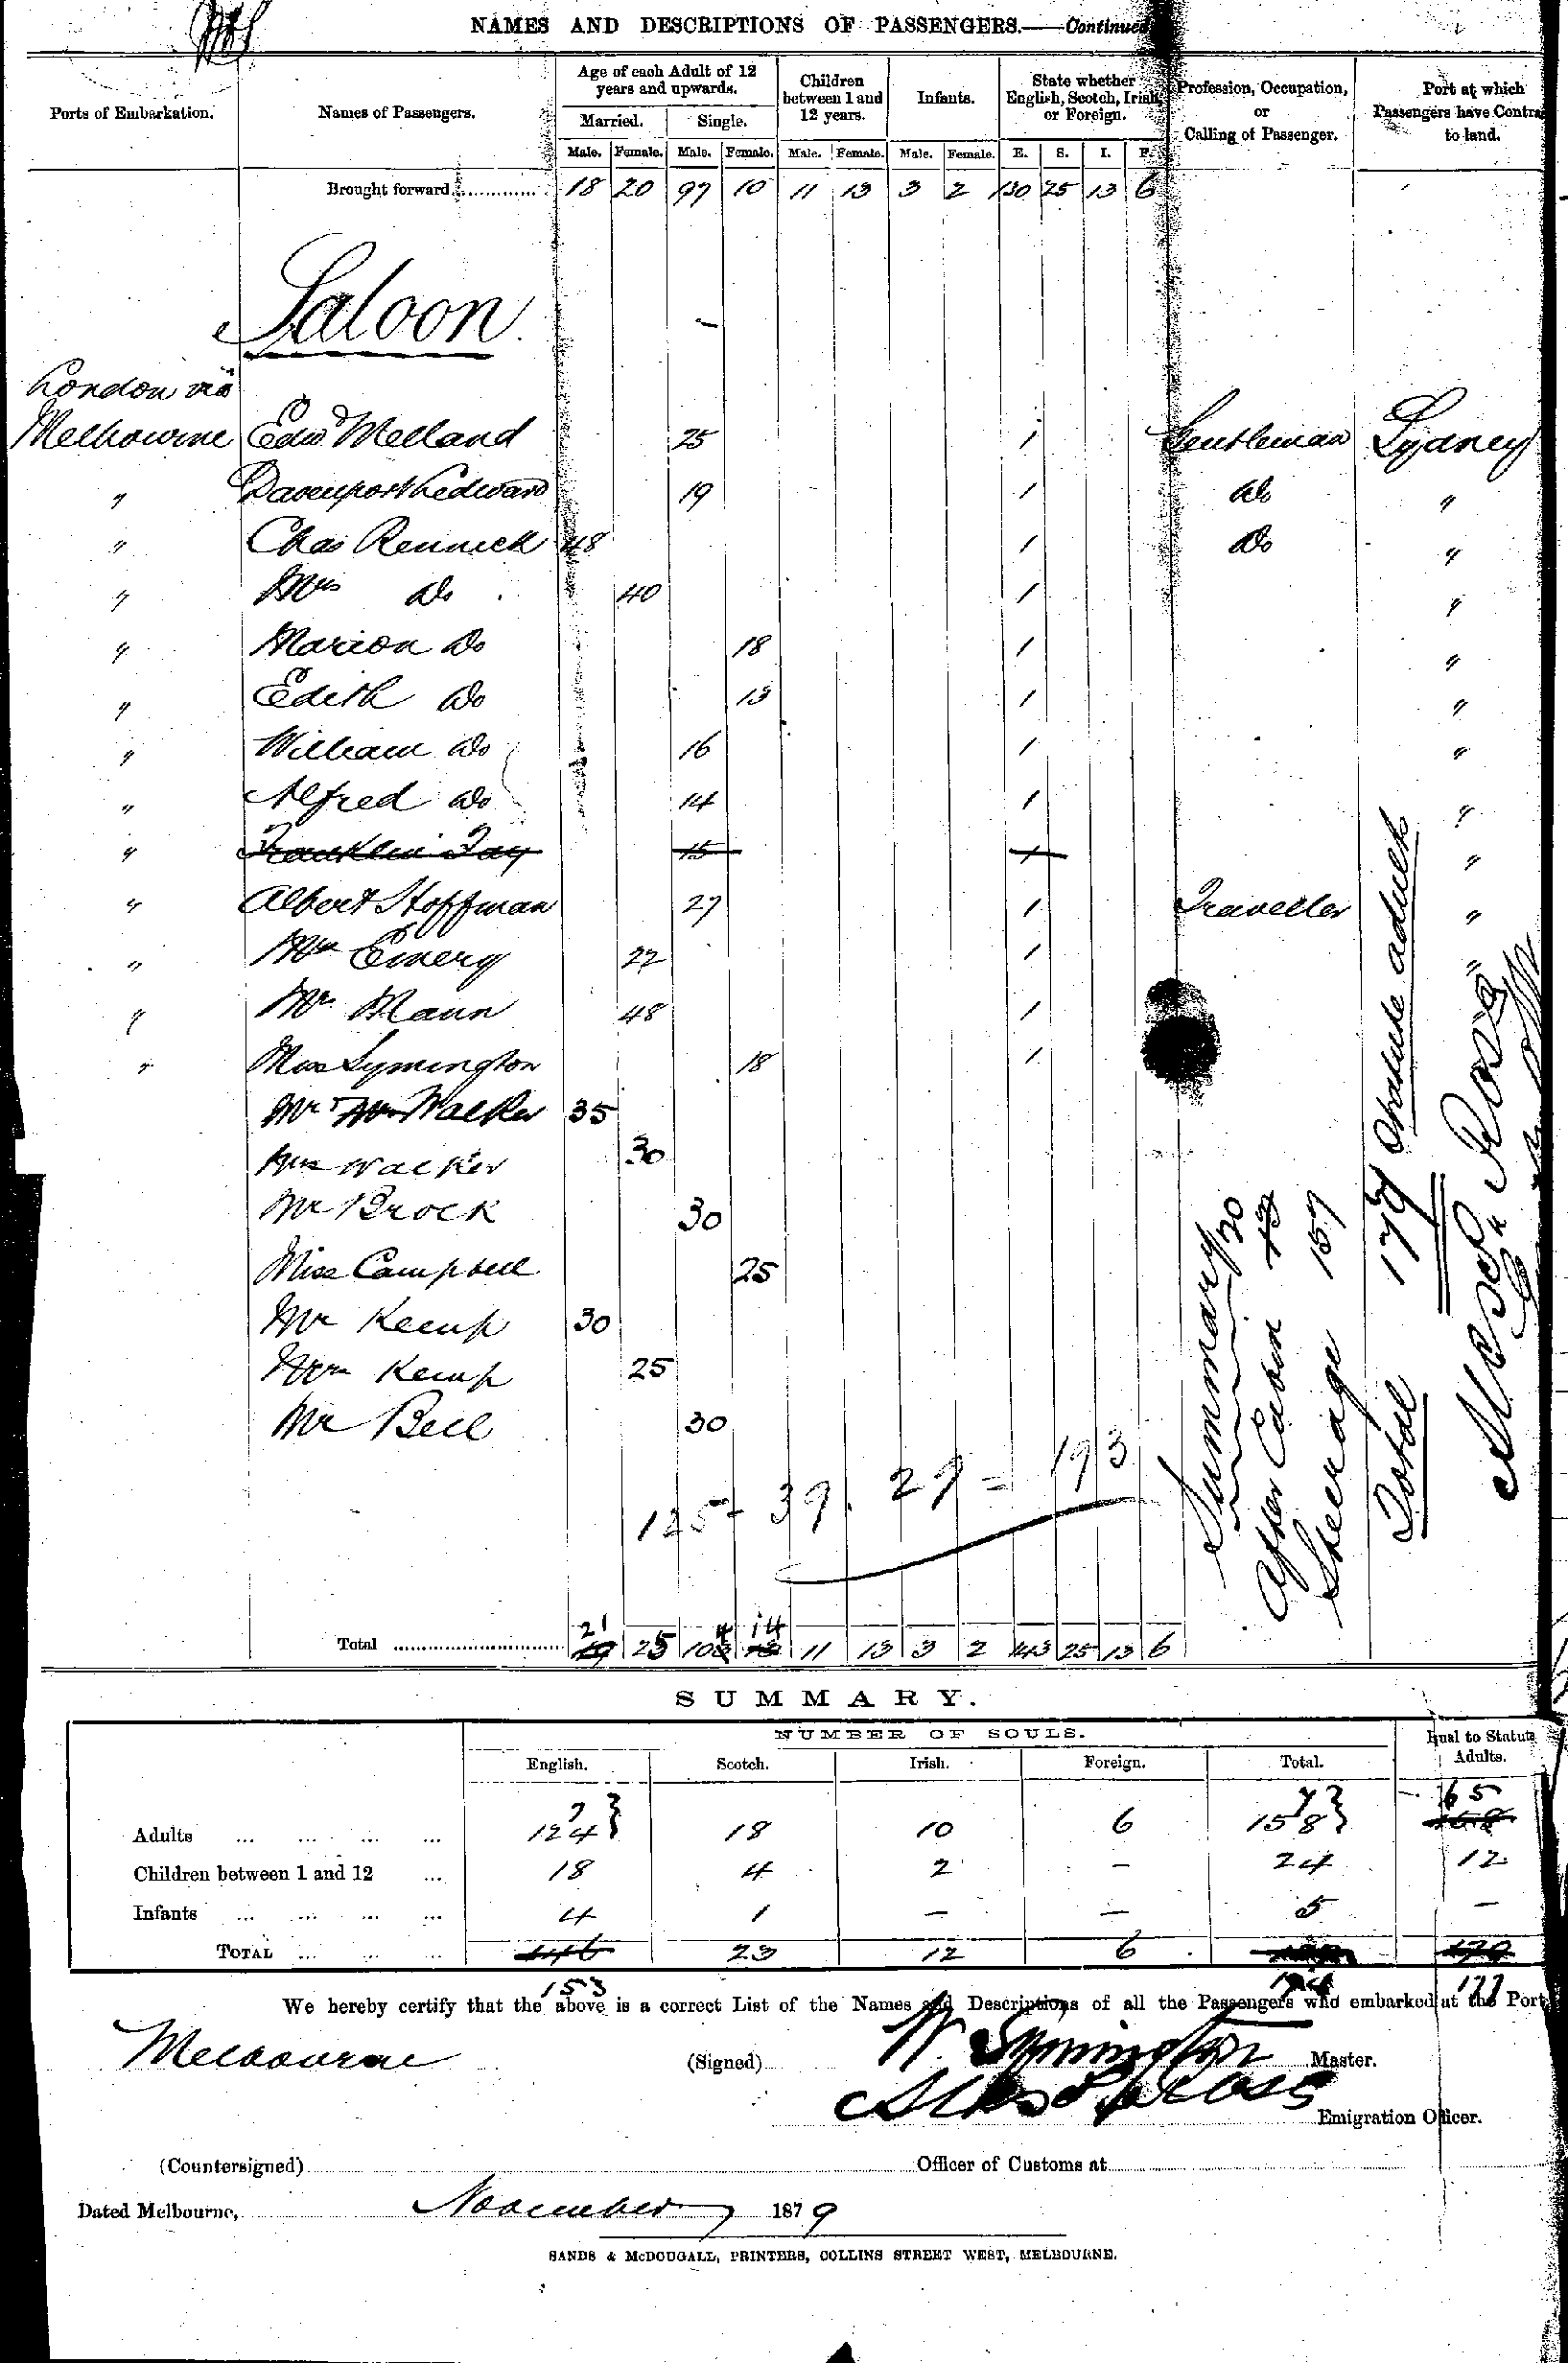 NAMES AND DESCRIPTIONS OF PASSENGERS.—Continued
Ports of Embarkation. Names of Passengers. Age of each Adult of 12 years and upwards. Children between 1 and 12 years. Infants. State whether English, Scotch, Irish or Foreign. Profession, Occupation, or Calling of Passenger. Port at which Passengers have Contra to land.
Married. Single.
Male. Female. Male. Female. Male. Female. Male. Female. E. S. I. F.
Brought forward 18 20 97 10 11 13 3 2 130 25 13 6
Saloon
London via
Melbourne Edwd Melland 25 1 Gentleman Sydney
" Davenport Ledward 19 1 do "
" Chas Rennick 48 1 Do "
" Mrs Do 40 1 "
" Marion Do 18 1 "
" Edith Do 13 1 "
" William Do 16 1 "
" Alfred Do 14 1 "
" Franklin Fay 15 1 "
" Albert Hoffman 27 1 Traveller "
" Mrs Emery 22 1 "
" Mrs Mann 48 1
" Miss Symington 18 1
Mr Walker 35
Mrs Walker 30
Mr Brock 30
Miss Campbell 25
Mr Kemp 30
Mrs Kemp 25
Mr Bell 30
125 + 39. 29 = 193
Summary
After Cabin 13 20
Steerage 157
Total 179 Statute adults
Total 21 25 104 14 11 13 3 2 143 25 13 6
SUMMARY.
NUMBER OF SOULS. Equal to Statute Adults.
English. Scotch. Irish. Foreign. Total.
7} 7} 165
Adults 124 18 10 6 158
Children between 1 and 12 18 4 2 – 24 12
Infants 4 1 – – 5 –
TOTAL 146 23 12 6 179
153 194 177
We hereby certify that the above is a correct List of the Names and Descriptions of all the Passengers who embarked at the Port
Melbourne (Signed) W. Symington Master.
Alexr Ross Emigration Officer.
(Countersigned) Officer of Customs at
Dated Melbourne, November 1879
SANDS & McDOUGALL, PRINTERS, COLLINS STREET WEST, MELBOURNE.